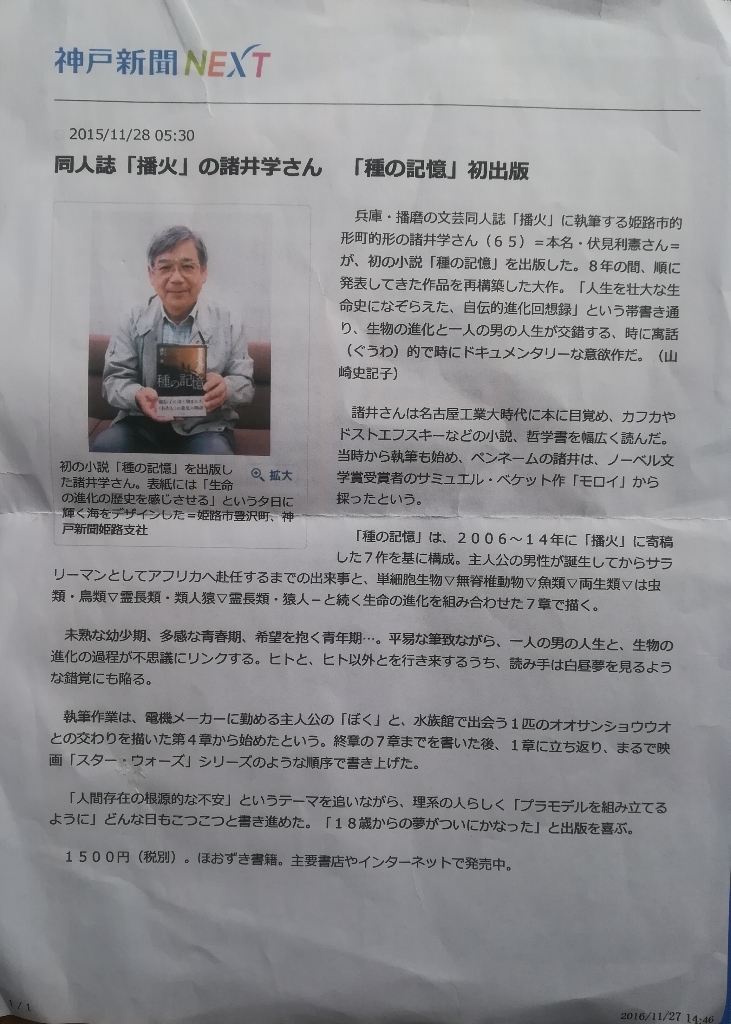 神戸新聞NEXT
2015/11/28 05:30
同人誌「播火」の諸井学さん 「種の記憶」初出版
兵庫・播磨の文芸同人誌「播火」に執筆する姫路市的
形町的形の諸井学さん（６５）＝本名・伏見利憲さん＝
が、初の小説「種の記憶」を出版した。８年の間、順に
発表してきた作品を再構築した大作。「人生を壮大な生
命史になぞらえた、自伝的進化回想録」という帯書き通
り、生物の進化と一人の男の人生が交錯する、時に寓話
（ぐうわ）的で時にドキュメンタリーな意欲作だ。（山
崎史記子）
種の記憶
初の小説「種の記憶」を出版し
た諸井学さん。表紙には「生命
の進化の歴史を感じさせる」という夕日に
輝く海をデザインした＝姫路市豊沢町、神
戸新聞姫路支社
拡大
諸井さんは名古屋工業大時代に本に目覚め、カフカや
ドストエフスキーなどの小説、哲学書を幅広く読んだ。
当時から執筆も始め、ペンネームの諸井は、ノーベル文
学賞受賞者のサミュエル・ベケット作「モロイ」から
採ったという。
「種の記憶」は、２００６～１４年に「播火」に寄稿
した７作を基に構成。主人公の男性が誕生してからサラ
リーマンとしてアフリカへ赴任するまでの出来事と、単細胞生物▽無脊椎動物▽魚類▽両生類▽は虫
類・鳥類▽霊長類・類人猿▽霊長類・猿人－と続く生命の進化を組み合わせた７章で描く。
未熟な幼少期、多感な青春期、希望を抱く青年期…。平易な筆致ながら、一人の男の人生と、生物の
進化の過程が不思議にリンクする。ヒトと、ヒト以外とを行き来するうち、読み手は白昼夢を見るよう
な錯覚にも陥る。
執筆作業は、電機メーカーに勤める主人公の「ぼく」と、水族館で出会う１匹のオオサンショウウオ
との交わりを描いた第４章から始めたという。終章の７章までを書いた後、１章に立ち返り、まるで映
画「スター・ウォーズ」シリーズのような順序で書き上げた。
「人間存在の根源的な不安」というテーマを追いながら、理系の人らしく「プラモデルを組み立てる
ように」どんな日もこつこつと書き進めた。「１８歳からの夢がついにかなった」と出版を喜ぶ。
１５００円（税別）。ほおずき書籍。主要書店やインターネットで発売中。
1/1
2016/11/27 14:46